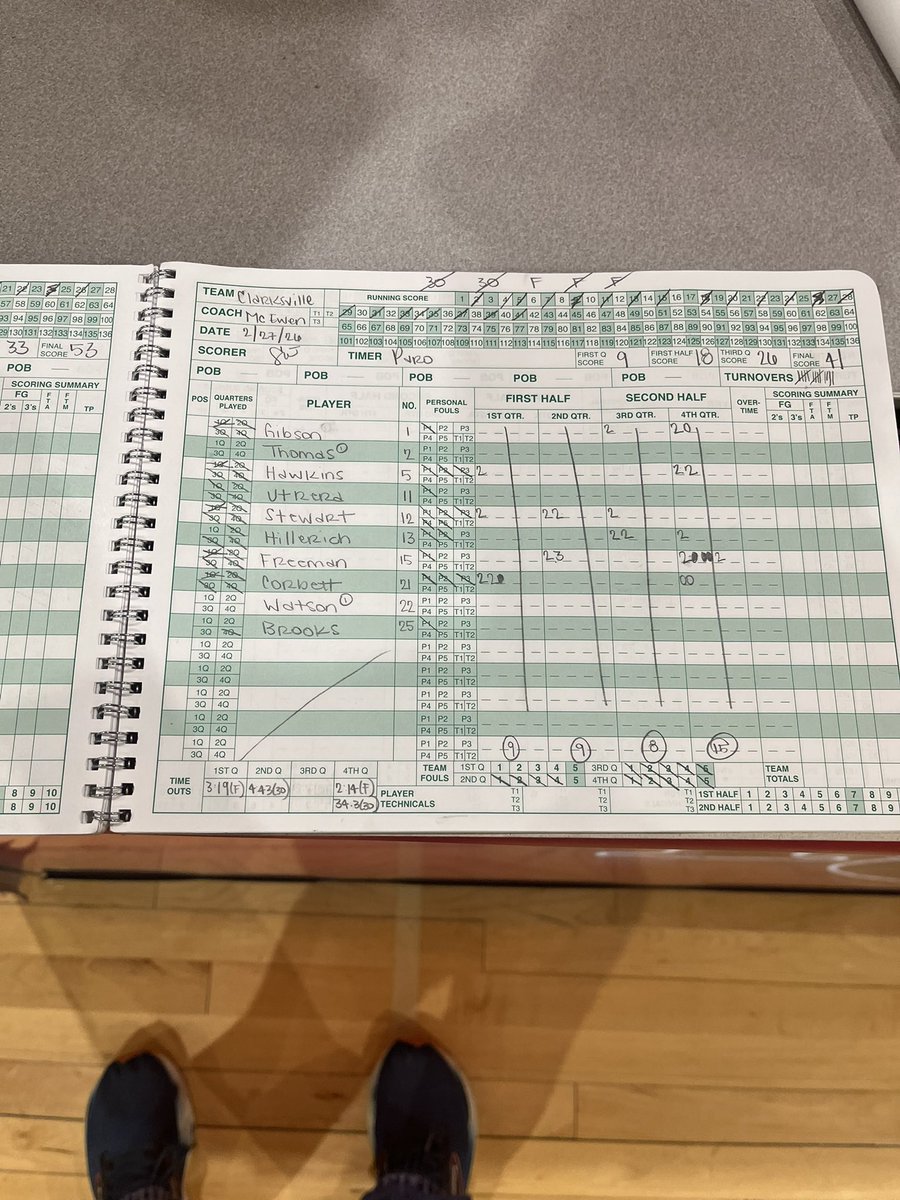 30 30 F F F
TEAM Clarksville RUNNING SCORE 1 2 3 4 5 6 7 8 9 10 11 12 13 14 15 16 17 18 19 20 21 22 23 24 25 26 27 28
COACH McEwen T1 T2 29 30 31 32 33 34 35 36 37 38 39 40 41 42 43 44 45 46 47 48 49 50 51 52 53 54 55 56 57 58 59 60 61 62 63 64
T3 65 66 67 68 69 70 71 72 73 74 75 76 77 78 79 80 81 82 83 84 85 86 87 88 89 90 91 92 93 94 95 96 97 98 99 100
DATE 2/27/26 101 102 103 104 105 106 107 108 109 110 111 112 113 114 115 116 117 118 119 120 121 122 123 124 125 126 127 128 129 130 131 132 133 134 135 136
SCORER TIMER Pyro FIRST Q SCORE 9 FIRST HALF SCORE 18 THIRD Q SCORE 26 FINAL SCORE 41
POB POB POB POB POB TURNOVERS
POS QUARTERS PLAYED PLAYER NO. PERSONAL FOULS FIRST HALF SECOND HALF OVER-TIME SCORING SUMMARY
1ST QTR. 2ND QTR. 3RD QTR. 4TH QTR. FG 2's 3's FTA FTM TP
1Q 2Q 3Q 4Q Gibson 1 P1 P2 P3 P4 P5 T1 T2 2 20
1Q 2Q 3Q 4Q Thomas ① 2 P1 P2 P3 P4 P5 T1 T2
1Q 2Q 3Q 4Q Hawkins 5 P1 P2 P3 P4 P5 T1 T2 2 22
1Q 2Q 3Q 4Q Utrera 11 P1 P2 P3 P4 P5 T1 T2
1Q 2Q 3Q 4Q Stewart 12 P1 P2 P3 P4 P5 T1 T2 2 22 2
1Q 2Q 3Q 4Q Hillerich 13 P1 P2 P3 P4 P5 T1 T2 22 2
1Q 2Q 3Q 4Q Freeman 15 P1 P2 P3 P4 P5 T1 T2 23 2 2
1Q 2Q 3Q 4Q Corbett 21 P1 P2 P3 P4 P5 T1 T2 22 00
1Q 2Q 3Q 4Q Watson ① 22 P1 P2 P3 P4 P5 T1 T2
1Q 2Q 3Q 4Q Brooks 25 P1 P2 P3 P4 P5 T1 T2
1Q 2Q 3Q 4Q P1 P2 P3 P4 P5 T1 T2
1Q 2Q 3Q 4Q P1 P2 P3 P4 P5 T1 T2
1Q 2Q 3Q 4Q P1 P2 P3 P4 P5 T1 T2
1Q 2Q 3Q 4Q P1 P2 P3 P4 P5 T1 T2
1Q 2Q 3Q 4Q P1 P2 P3 P4 P5 T1 T2 9 9 8 15
TIME OUTS 1ST Q 2ND Q 3RD Q 4TH Q TEAM FOULS 1ST Q 1 2 3 4 5 3RD Q 1 2 3 4 5 TEAM TOTALS
3:19(F) 4:43(30) 2:14(F) 2ND Q 1 2 3 4 5 4TH Q 1 2 3 4 5
34.3(30) PLAYER TECHNICALS T1 T2 T3 T1 T2 T3 T1 T2 T3 1ST HALF 1 2 3 4 5 6 7 8 9
2ND HALF 1 2 3 4 5 6 7 8 9
21 22 23 24 25 26 27 28
57 58 59 60 61 62 63 64
93 94 95 96 97 98 99 100
129 130 131 132 133 134 135 136
33 FINAL SCORE 53
POB
SCORING SUMMARY
FG 2's 3's FTA FTM TP
8 9 10
8 9 10